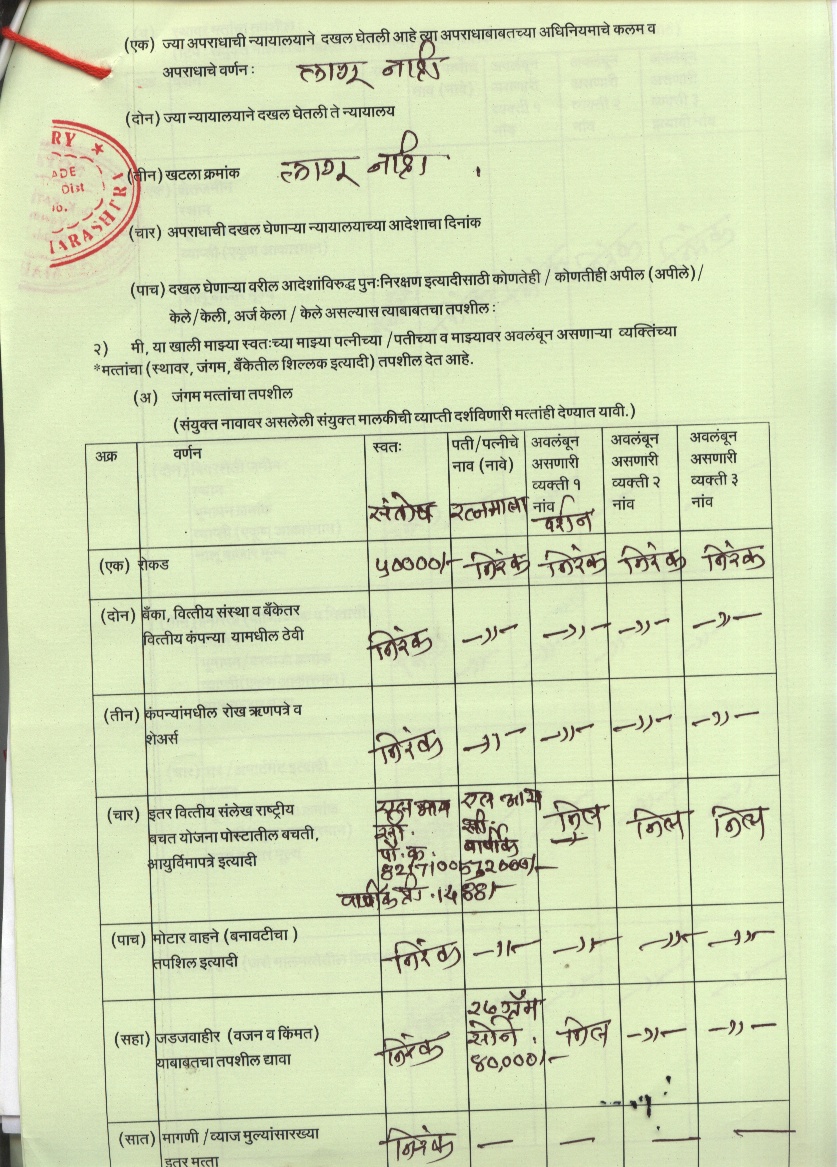 (एक) ज्या अपराधाची न्यायालयाने दखल घेतली आहे त्या अपराधाबाबतच्या अधिनियमाचे कलम व
अपराधाचे वर्णन : लागू नाही
(दोन) ज्या न्यायालयाने दखल घेतली ते न्यायालय
RY
ADE
Dist
ARASHTRA
(तीन) खटला क्रमांक लागू नाही .
(चार) अपराधाची दखल घेणाऱ्या न्यायालयाच्या आदेशाचा दिनांक
(पाच) दखल घेणाऱ्या वरील आदेशांविरुद्ध पुनःनिरक्षण इत्यादीसाठी कोणतेही / कोणतीही अपील (अपीले)/
केले/केली, अर्ज केला / केले असल्यास त्याबाबतचा तपशील :
२) मी, या खाली माझ्या स्वतःच्या माझ्या पत्नीच्या /पतीच्या व माझ्यावर अवलंबून असणाऱ्या व्यक्तिंच्या
*मत्तांचा (स्थावर, जंगम, बँकेतील शिल्लक इत्यादी) तपशील देत आहे.
(अ) जंगम मत्तांचा तपशील
(संयुक्त नावावर असलेली संयुक्त मालकीची व्याप्ती दर्शविणारी मत्तांही देण्यात यावी.)
अक्र वर्णन स्वतः पती/पत्नीचे अवलंबून अवलंबून अवलंबून
नाव (नावे) असणारी असणारी असणारी
व्यक्ती १ व्यक्ती २ व्यक्ती ३
नांव नांव नांव
संतोष रत्नमाला दर्शन
(एक) रोकड ५००००/- निरंक निरंक निरंक निरंक
(दोन) बँका, वित्तीय संस्था व बँकेतर
वित्तीय कंपन्या यामधील ठेवी निरंक -,,- -,,- -,,- -,,-
(तीन) कंपन्यांमधील रोख ऋणपत्रे व
शेअर्स निरंक -,,- -,,- -,,- -,,-
(चार) इतर वित्तीय संलेख राष्ट्रीय एल आय एल आय निल निल निल
बचत योजना पोस्टातील बचती, सी. सी. वार्षिक
आयुर्विमापत्रे इत्यादी पॉ.क्र.
(पाच) मोटार वाहने (बनावटीचा )
तपशिल इत्यादी निरंक -,,- -,,- -,,- -,,-
(सहा) जडजवाहीर (वजन व किंमत) २७ ग्रॅम
याबाबतचा तपशील द्यावा निरंक सोने . निल -,,- -,,-
४०,०००/-
(सात) मागणी /व्याज मुल्यांसारख्या
इतर मत्ता निरंक — — — —